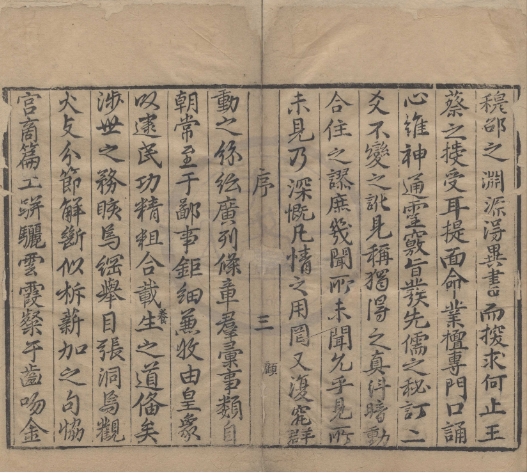 穆邵之淵源得異書而授求何止王
蔡之授受耳提面命業擅專門口誦
心維神通靈竅旨發先儒之秘訂二
爻不變之訛見稱獨得之真糾暗動
合住之謬庶幾聞所未聞允乎見所
未見乃深慨凡情之用罔又復窺群
動之紛紜廣列條章羣彙事類自
朝常至于鄙事鉅細兼收由皇衷
以逮民功精粗合載生養之道俻矣
涉世之務賅焉綱舉目張洞焉觀
火支分節解斷似析薪加之句恊
宮商篇工駢驪雲霞粲乎齒吻金
序 三